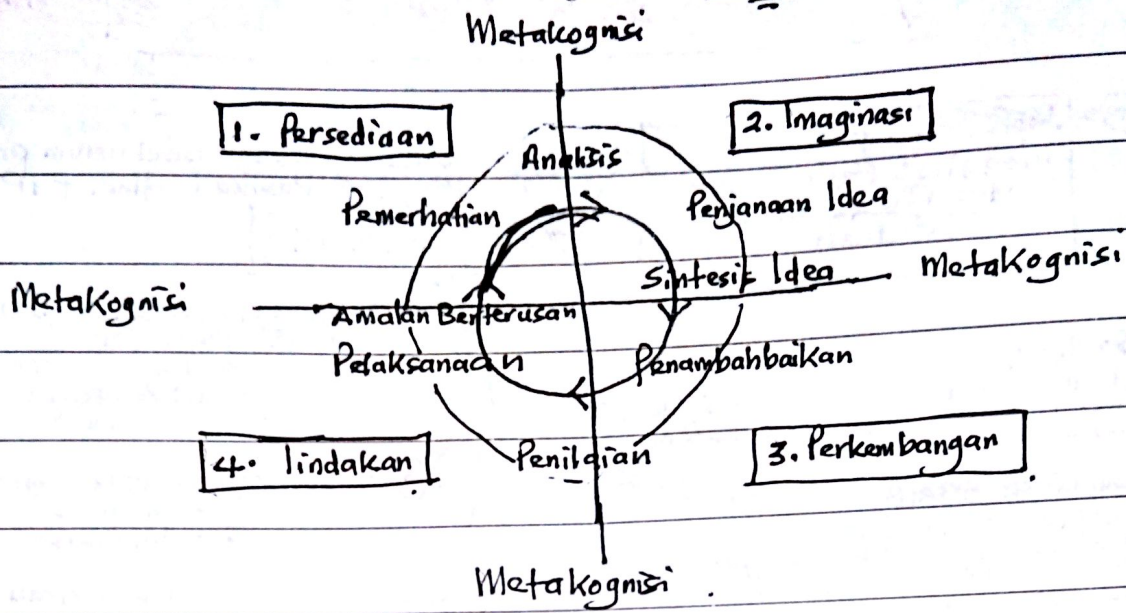 Metakognisi
1. Persediaan
2. Imaginasi
Analisis
Pemerhatian
Penjanaan Idea
Sintesis Idea
Metakognisi
Metakognisi
Amalan Berterusan
Pelaksanaan
Penambahbaikan
4. Tindakan
Penilaian
3. Perkembangan
Metakognisi.